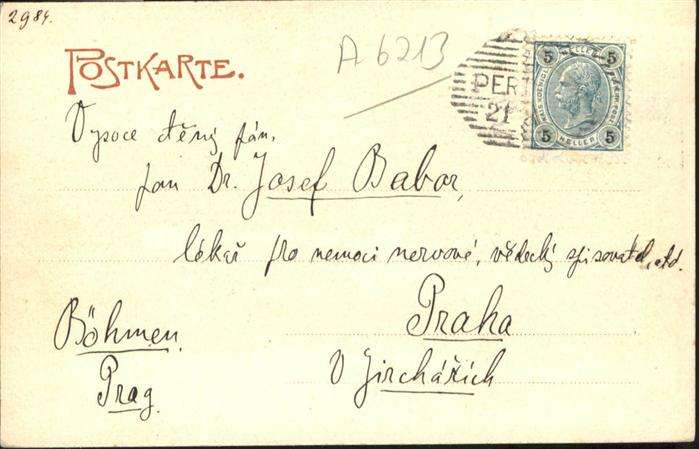 2984.
POSTKARTE.
A 6213
PER
21
5 HELLER 5
5 HELLER 5
Vysoce ctěný pán,
pan Dr. Josef Babor,
lékař pro nemoci nervové, vědecký spisovatel, atd.
Praha
V Jirchářích
Böhmen
Prag